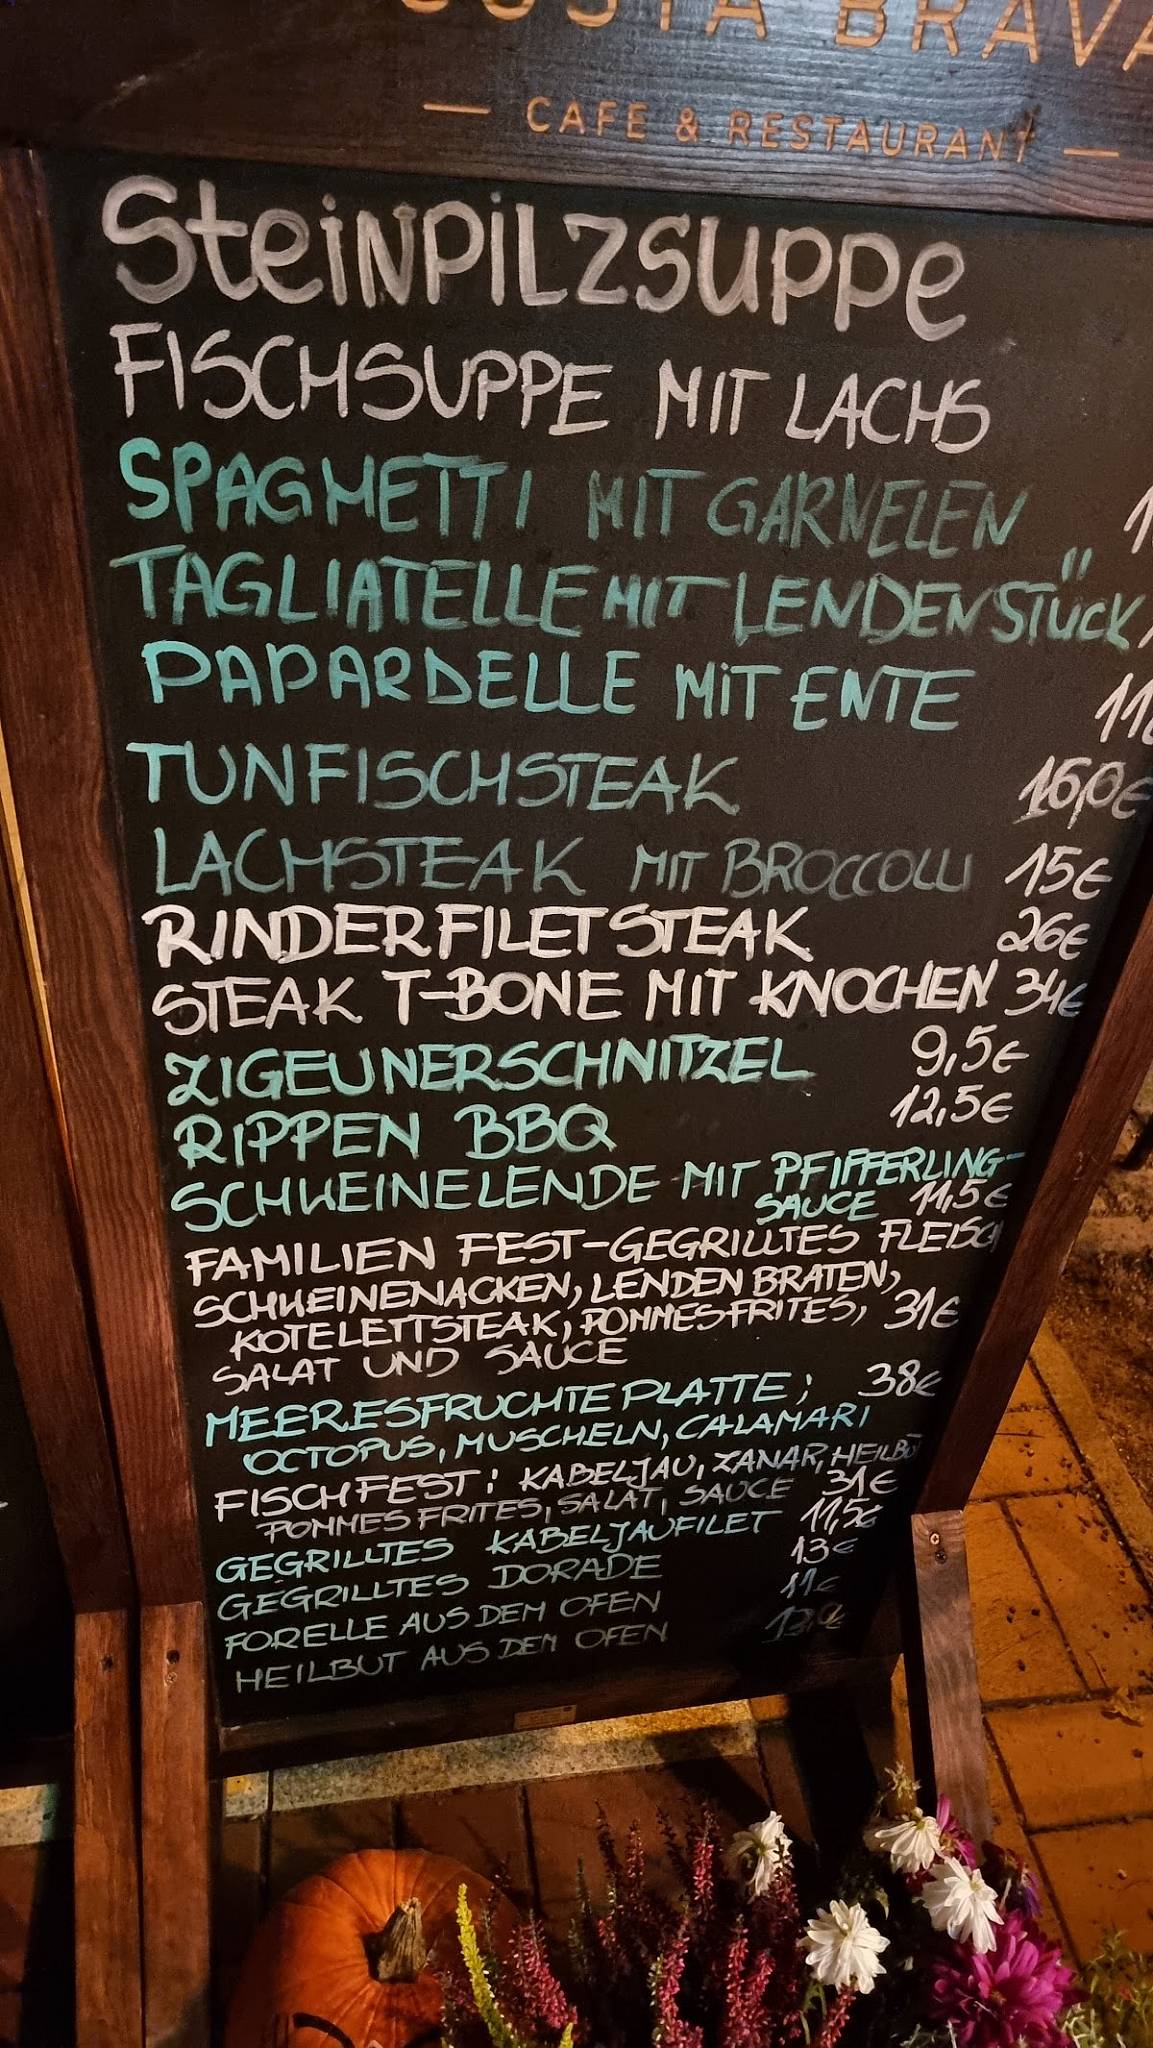 COSTA BRAVA
— CAFE & RESTAURANT —
SteinPilzsuppe
FISCHSUPPE MIT LACHS
SPAGHETTI MIT GARNELEN
TAGLIATELLE MIT LENDENSTÜCK
PAPARDELLE MIT ENTE
TUNFISCHSTEAK
LACHSTEAK MIT BROCCOLLI 15€
RINDERFILETSTEAK 26€
STEAK T-BONE MIT KNOCHEN 34€
ZIGEUNERSCHNITZEL 9,5€
RIPPEN BBQ 12,5€
SCHWEINELENDE MIT PFIFFERLING-
SAUCE 11,5€
FAMILIEN FEST-GEGRILLTES FLEISCH
SCHWEINENACKEN, LENDEN BRATEN,
KOTELETTSTEAK, POMMESFRITES, 31€
SALAT UND SAUCE
MEERESFRUCHTEPLATTE; 38€
OCTOPUS, MUSCHELN, CALAMARI
FISCHFEST: KABELJAU, ZANAR, HEILBUT
POMMES FRITES, SALAT, SAUCE 31€
GEGRILLTES KABELJAUFILET 11,5€
GEGRILLTES DORADE 13€
FORELLE AUS DEM OFEN 11€
HEILBUT AUS DEM OFEN